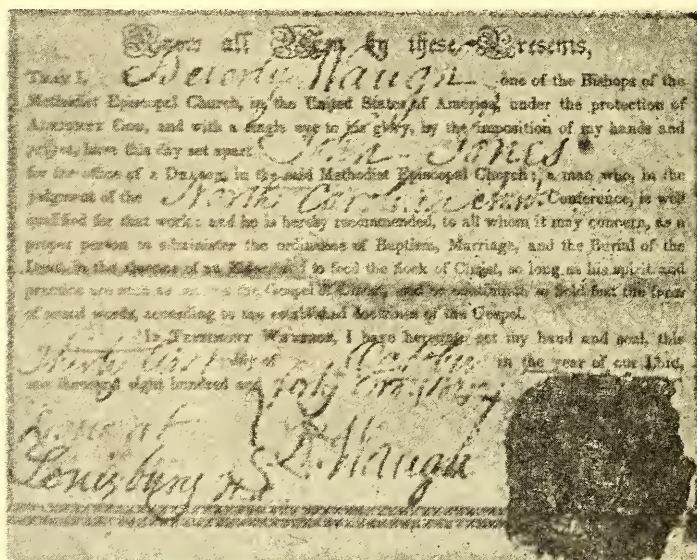 Know all Men by these Presents,
THAT I, Beverly Waugh one of the Bishops of the
Methodist Episcopal Church, in the United States of America, under the protection of
ALMIGHTY GOD, and with a single eye to his glory, by the imposition of my hands and
prayer, have this day set apart John Jones
for the office of a DEACON, in the said Methodist Episcopal Church; a man who, in the
judgment of the North Carolina Conference, is well
qualified for that work: and he is hereby recommended, to all whom it may concern, as a
proper person to administer the ordinances of Baptism, Marriage, and the Burial of the
Dead, in the absence of an Elder, and to feed the flock of Christ, so long as his spirit and
practice are such as become the Gospel of Christ, and he continueth to hold fast the form
of sound words, according to the established doctrines of the Gospel.
IN TESTIMONY WHEREOF, I have hereunto set my hand and seal, this
Thirty first day of October in the year of our Lord,
one thousand eight hundred and forty
B. Waugh
Louisburg